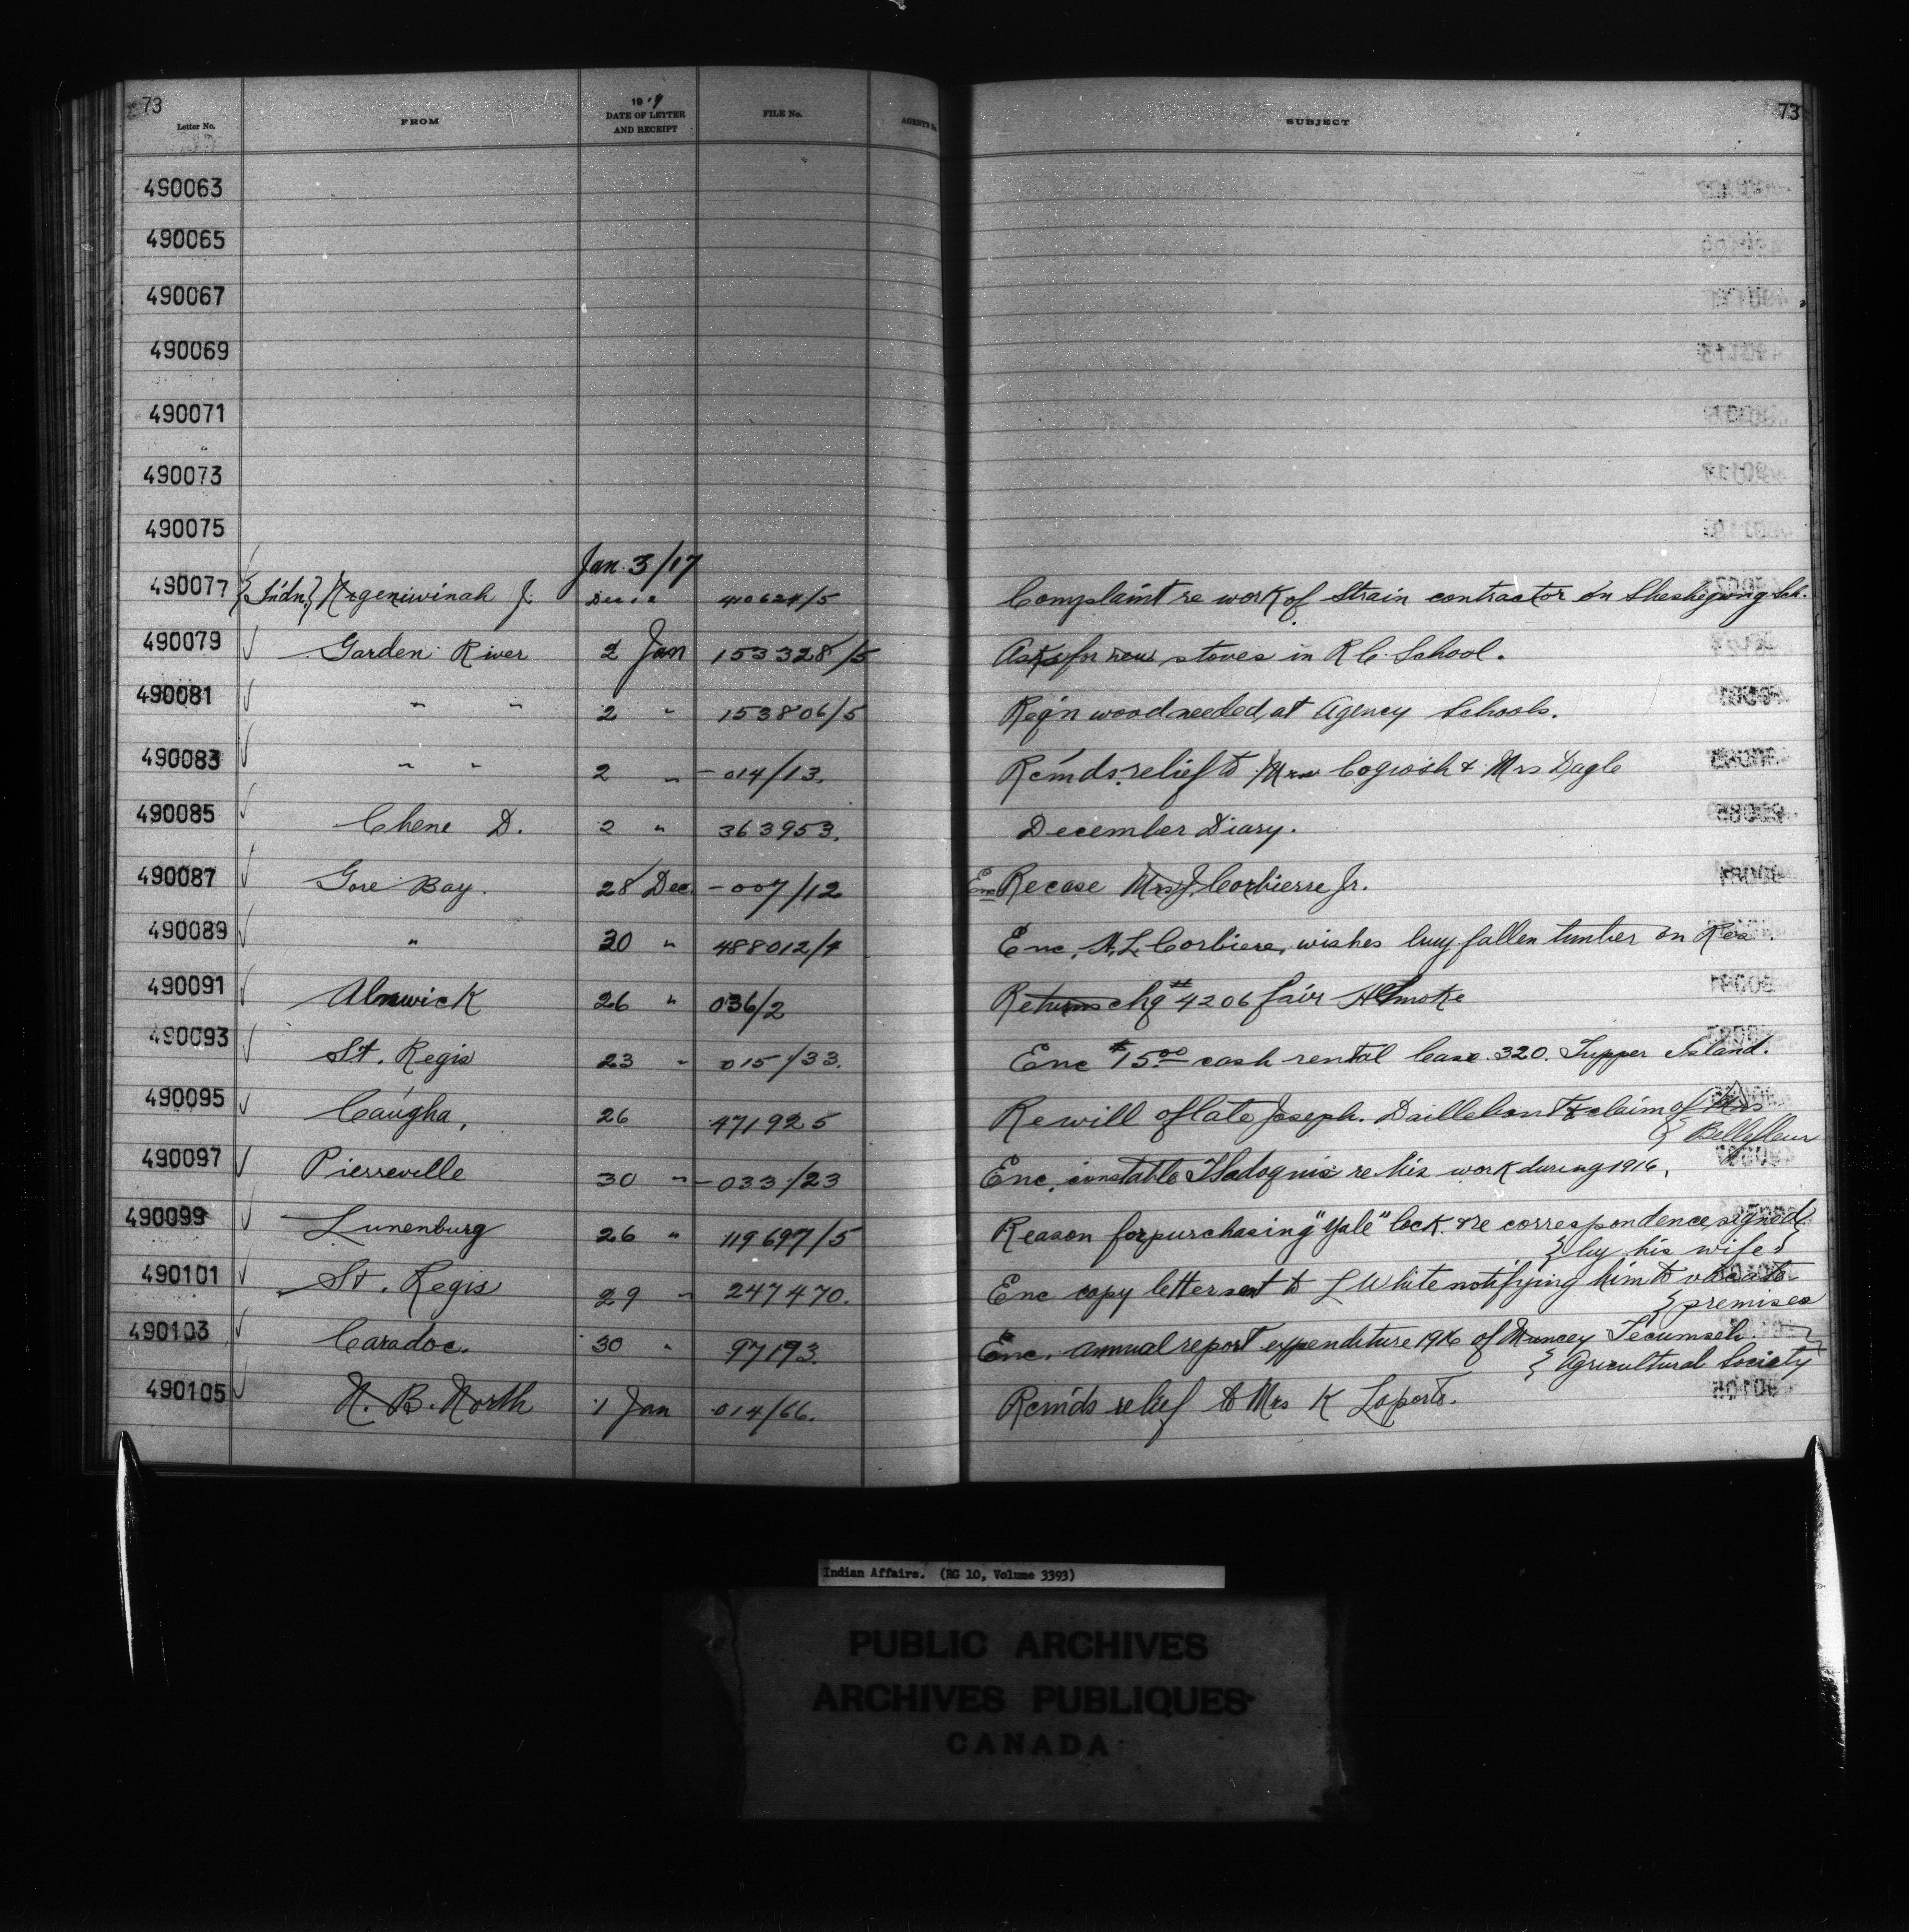 73 73
Letter No. FROM 191 DATE OF LETTER AND RECEIPT FILE No. AGENT'S No. SUBJECT
490063
490065
490067
490069
490071
490073
490075
Jan. 3/17
490077 {Indn} J. Dec 410624/5 Complaint re work of Strain contractor on Sheshegwong Sch.
490079 Garden River 2 Jan 153328/5 Asks for new stoves in R C. School.
490081 " " 2 " 153806/5 Reg'n wood needed at Agency Schools.
490083 " " 2 " -014/13. Rem'ds relief to Mrs Cogwosh & Mrs Dagle
490085 Chene D. 2 " 363953. December Diary.
490087 Gore Bay. 28 Dec. -007/12 Enc Re case Mrs J. Corbierre Jr.
490089 " 30 " 488012/4 Enc. A. L. Corbiere, wishes buy fallen timber on Res.
490091 Alnwick 26 " 036/2 Returns chq #4206 fair Smoke
490093 St. Regis 23 " 015/33. Enc $15.00 cash rental lease 320. Tupper Island.
490095 Caugha, 26 471925 Re will of late Joseph. Daillebout & claim of Mrs
} Bellefleur
490097 Pierreville 30 " -033/23 Enc. constable re his work during 1916.
490099 Lunenburg 26 " 119697/5 Reason for purchasing "Yale" lock & re correspondence signed
{ by his wife }
490101 St. Regis 29 " 247470. Enc copy letter sent to L White notifying him to vacate
} premises
490103 Caradoc. 30 " 97193. Enc. annual report expenditure 1916 of Muncey Tecumseh
{ Agricultural Society
490105 N. B. North 1 Jan 014/66. Rem'ds relief to Mrs K Laporte.
Indian Affairs. (RG 10, Volume 3393)
PUBLIC ARCHIVES
ARCHIVES PUBLIQUES
CANADA